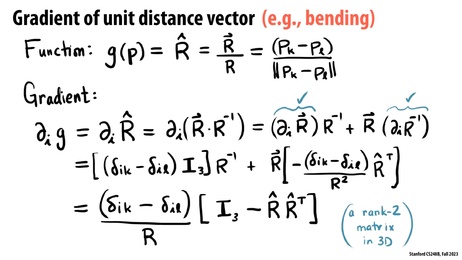 Gradient of unit distance vector (e.g., bending)
Function: g(p) = R̂ = R⃗/R = (p_k - p_l)/‖p_k - p_l‖
Gradient:
∂_i g = ∂_i R̂ = ∂_i(R⃗·R⁻¹) = (∂_i R⃗) R⁻¹ + R⃗ (∂_i R⁻¹)
✓ ✓
= [(δ_ik - δ_il) I_3] R⁻¹ + R⃗ [-(δ_ik - δ_il)/R² R̂ᵀ]
= (δ_ik - δ_il)/R [I_3 - R̂ R̂ᵀ]
(a rank-2
matrix
in 3D)
Stanford CS248B, Fall 2023